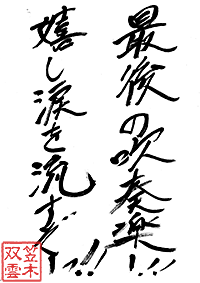 最後の吹奏楽!!
嬉し涙を流すぞ!!
笠木
双雲